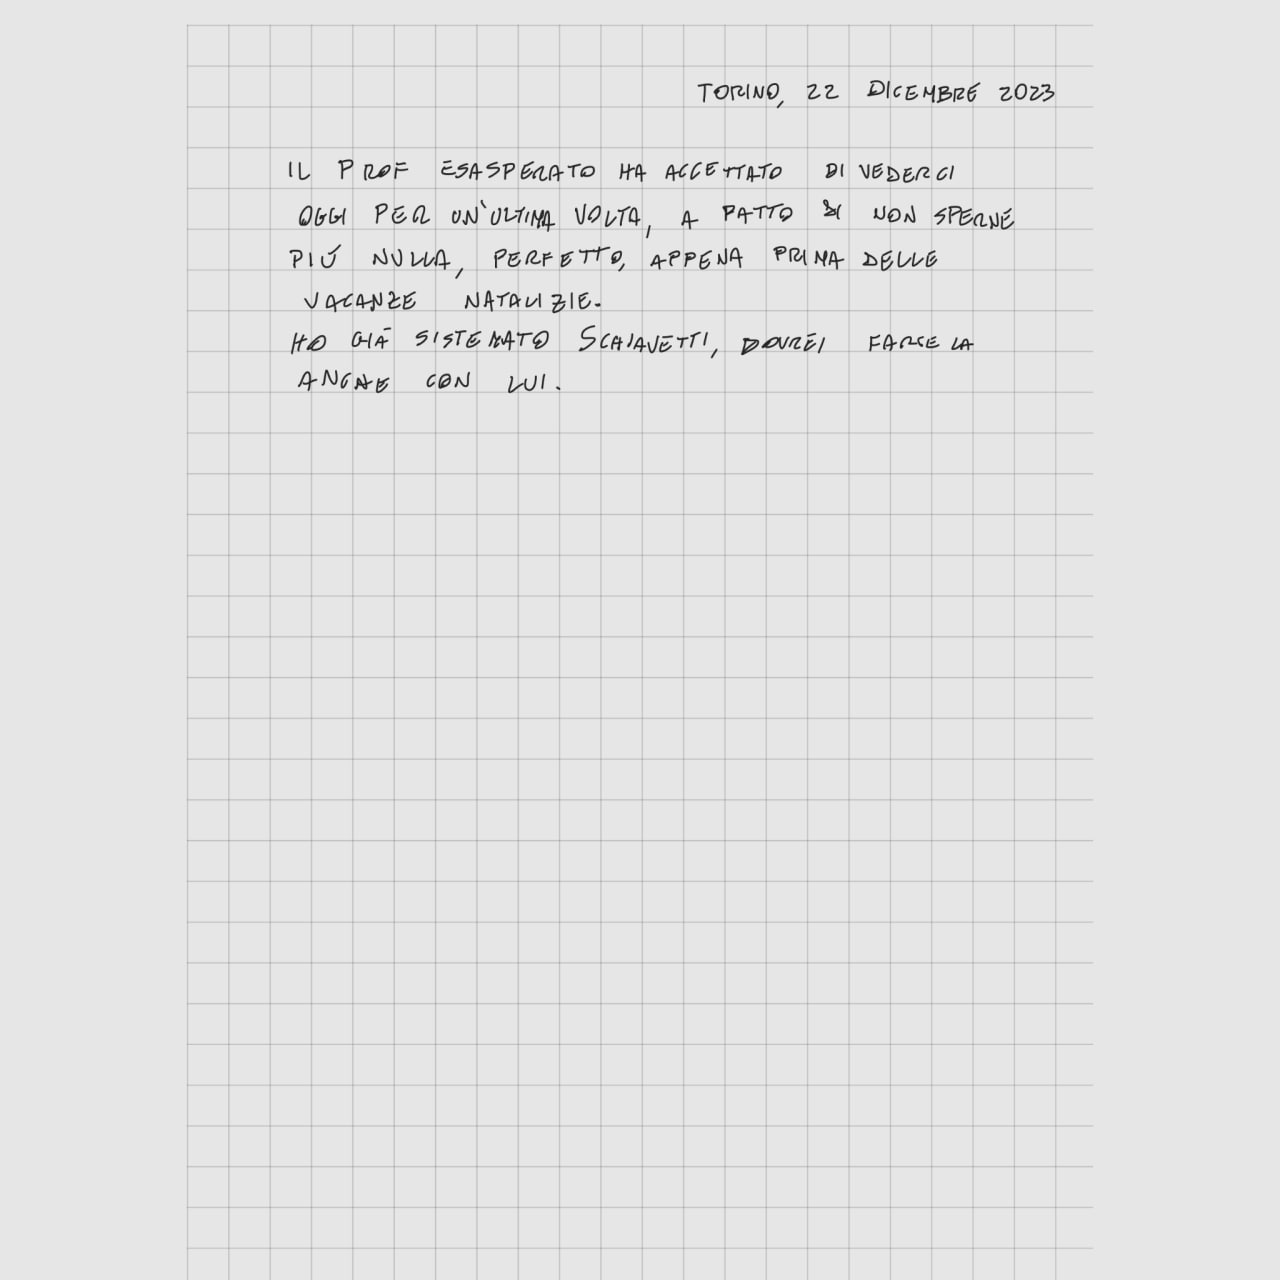 TORINO, 22 DICEMBRE 2023
IL PROF ESASPERATO HA ACCETTATO DI VEDERCI
OGGI PER UN'ULTIMA VOLTA, A PATTO DI NON SPERNE
PIÚ NULLA, PERFETTO, APPENA PRIMA DELLE
VACANZE NATALIZIE.
HO GIÀ SISTEMATO SCHIAVETTI, DOVREI FARCELA
ANCHE CON LUI.